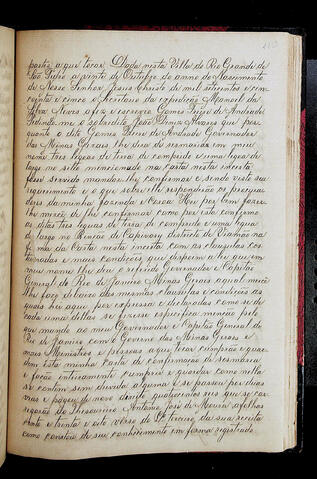 partes a que tocar Dada nesta Villa do Rio Grande de
São Pedro a vinte de Outubro do anno do Nascimento
de Nosso Senhor Jesus Christo de mil setecentos e cin
coenta e cinco o Secretario da expedição Manoel da
Silva Neves o fez e escrevo Gomes Freire de Andrade
Pedindo me o sobredito João Diniz Alvares que por
quanto o dito Gomes Freire de Andrade Governador
das Minas Geraes lhe dera de sesmaria em meu
nome tres legoas de terra de comprido e uma legoa de
largo no sitio mencionado na carta nesta incerta
fosse servido mandar lhe confirmar e sendo visto seu
requerimento e o que sobre elle responderão os procura
dores da minha fazenda e Coroa Hei por bem fazer
lhe mercê de lhe confirmar como por esta confirmo
as ditas tres legoas de terra de comprido e uma legua
de largo no Sertão de Capivary districto de Viamão na
forma da Carta nesta incerta com as clausulas cos
tumadas e mais condições que dispoem a lei que em
meu nome lhe deu o referido Governador e Capitão
General do Rio de Janeiro Minas Geraes a qual mercê
lhe faço debaixo das mesmas clausulas e condições as
quaes hei aqui por expressas e declaradas como se de
cada uma dellas se fizesse especifica menção pelo
que mando ao meu Governador e Capitão General do
Rio de Janeiro com o Governo das Minas Geraes e
mais Ministros e pessoas a que tocar cumprão e guar
dem esta minha Carta de confirmação de sesmaria
e fação inteiramente cumprir e guardar como nella
se contém sem duvida alguma e se passou por duas
vias e pagou de novo direito quatrocentos reis que se car
regarão ao thesoureiro Antonio José de Moura a folhas
cento e trinta e oito verso do Lº terceiro da sua receita
como constou do seu conhecimento em forma registrado